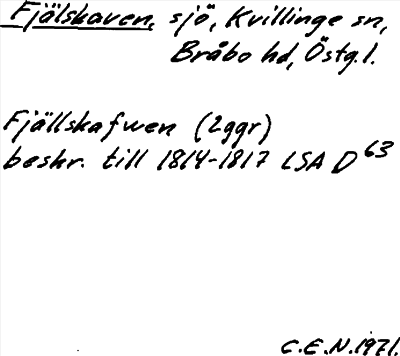 Fjälskaven, sjö, Kvillinge sn,
Bråbo hd, Östg.l.
Fjällskafwen (2ggr)
beskr. till 1814-1817 LSA D63
C.E.N. 1971.